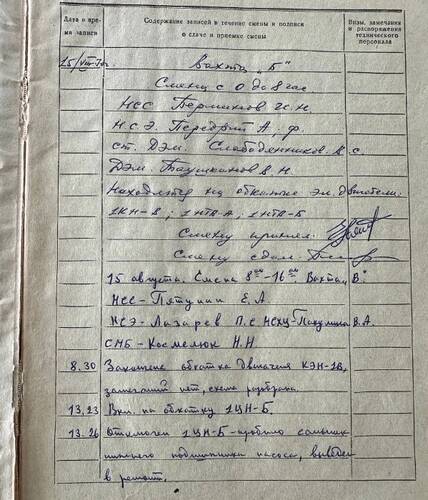 Дата и вре-
мя записи
Содержание записей в течение смены и подписи
о сдаче и приемке смены
Визы, замечания
и распоряжения
технического
персонала
15/VIII
Вахта „Б"
Смена с 0 до 8 час
НСС Перминов И.Н
НСЭ. Передрий А. ф.
ст. Дэм. Слободянников. К с.
Дэм. Таушканов В. Н.
Находятся на обкатке эл. двигатели:
1КН-В; 1НТВ-А; 1НТВ-Б
Смену принял:
Смену сдал:
15 августа. Смена 8оо-16оо. Вахта „В"
НСС- Пятунин Е. А
НСЭ- Лазарев П. С НСХЦ- В. А.
СМБ- Космелюк Н. Н
8.30 Закончена обкатка двигателя КЭН-1В,
замечаний нет, схема разобрана.
13,23 Вкл. на обкатку 1ЦН-Б.
13.26 Отключен 1ЦН-Б - пробило сальник
нижнего подшипника насоса, выведен
в ремонт.